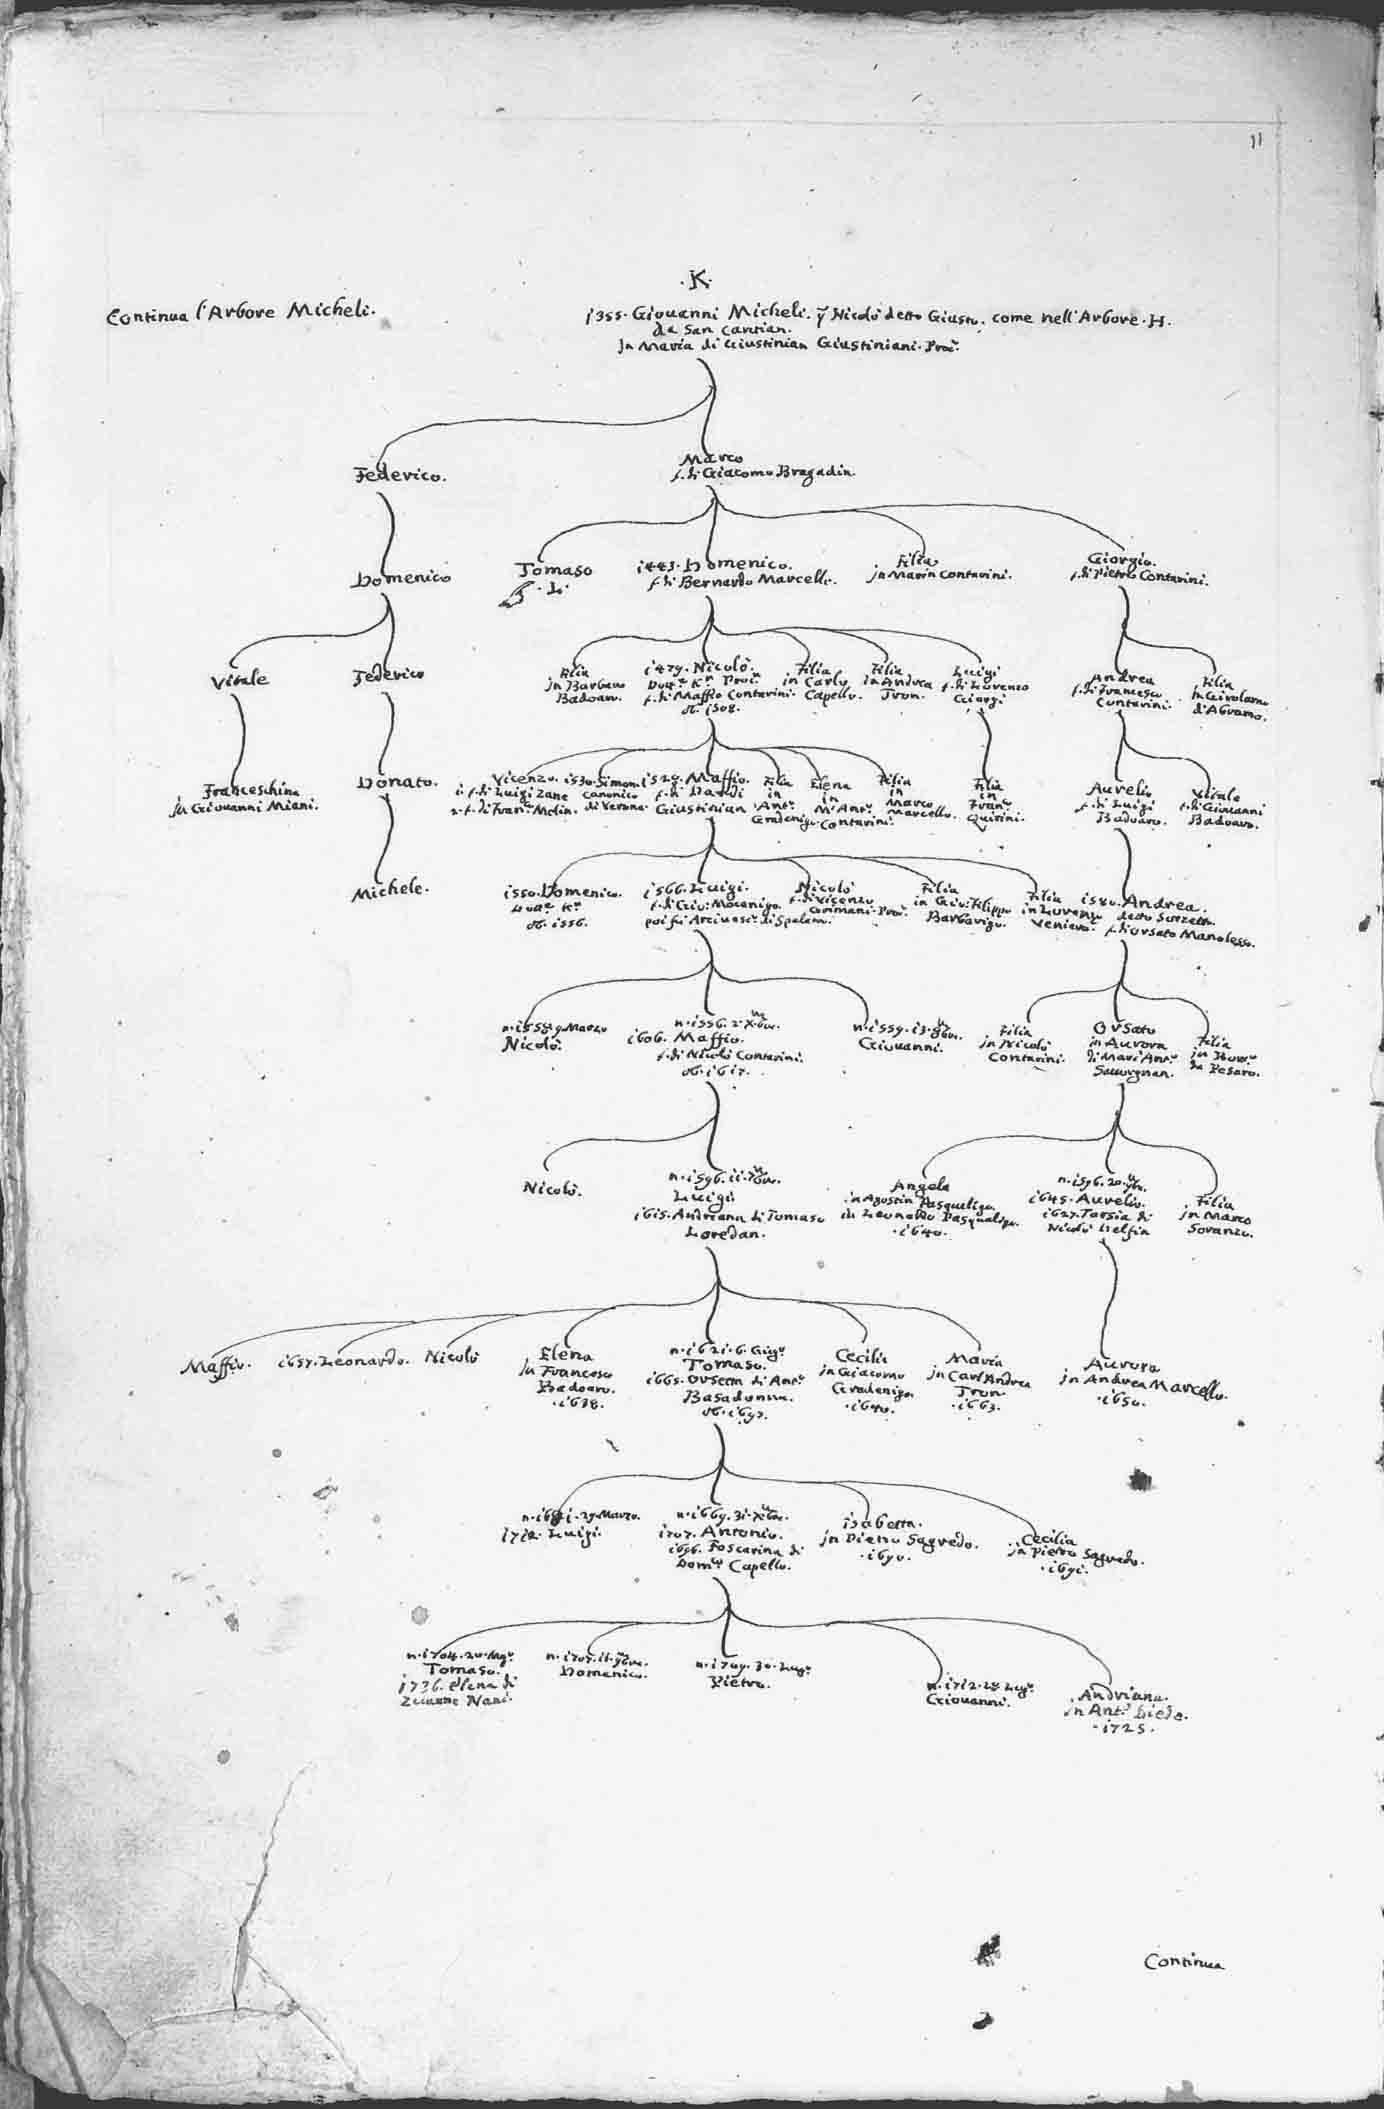 11
.K.
Continua l'Arbore Micheli.
1355. Giovanni Micheli. q Nicolò detto Giusto. come nell'Arbore. H.
da San Cantian.
in Maria di Giustinian Giustiniani. Proc.r
Federico.
Marco
f. di Giacomo Bragadin.
Domenico
Tomaso
. L.
1443. Domenico.
f. di Bernardo Marcello.
Filia
in Marin Contarini.
Giorgio.
f. di Pietro Contarini.
Vitale
Federico
Filia
in Barbaro
Badoaro.
1479. Nicolò.
Dott.r K.r Proc.r
f. di Maffio Contarini.
ob. 1508.
Filia
in Carlo
Capello.
Filia
in Andrea
Tron.
Luigi
f. di Lorenzo
Giorgi
Andrea
f. di Francesco
Contarini.
Filia
in Girolamo
d'Abramo.
Franceschina
in Giovanni Miani.
Donato.
Vicenzo.
1. f. di Luigi Zane
2. f. di Fran.co Molin.
1530. Simon.
canonico
di Verona.
1529. Maffio.
f. di Dardi
Giustinian
Filia
in
Ant.o
Gradenigo.
Elena
in
M. Ant.o
Contarini.
Filia
in
Marco
Marcello.
Filia
in
Fran.co
Quirini.
Aurelio
f. di Luigi
Badoaro.
Vitale
f. di Giovanni
Badoaro.
Michele.
1550. Domenico.
Dott.r K.r
ob. 1556.
1566. Luigi.
f. di Gio: Mocenigo
poi fù Arcivesc.o di Spalato.
Nicolò
f. di Vicenzo
Grimani. Proc.r
Filia
in Gio: Filippo
Barbarigo.
Filia
in Lorenzo
Veniero.
1580. Andrea.
detto
f. di Orsato Manolesso.
n. 1558. 9. Marzo
Nicolò.
n. 1556. 2. Xbre.
1606. Maffio.
f. di Nicolò Contarini.
ob. 1617.
n. 1559. 13. 8bre.
Giovanni.
Filia
in Nicolò
Contarini.
Orsato
in Aurora
di Marc'Ant.o
Savorgnan.
Filia
in
da Pesaro.
Nicolò.
n. 1596. 11. 7bre.
Luigi.
1615. Andriana di Tomaso
Loredan.
Angela
in Agostin Pasqualigo.
in Leonardo Pasqualigo.
. 1640.
n. 1596. 20. 9bre.
1645. Aurelio.
1627. Tarsia di
Nicolò Delfin
Filia
in Marco
Soranzo.
Maffio.
1657. Leonardo.
Nicolò
Elena
in Francesco
Badoaro.
. 1638.
n. 1621. 6. Giug.o
Tomaso.
1665. Orsetta di Ant.o
Basadonna.
ob. 1697.
Cecilia
in Giacomo
Gradenigo
. 1640.
Maria
in Carl'Andrea
Tron
. 1663.
Aurora
in Andrea Marcello.
. 1650.
29. Marzo.
1712. Luigi.
n. 1669. 31. Xbre.
1707. Antonio.
1696. Foscarina di
Dom.co Capello.
Isabetta.
in Pietro Sagredo.
. 1690.
Cecilia
in Pietro Sagredo.
. 1691.
n. 1704. 20. Mag.o
Tomaso.
1736. Elena di
Zuanne Nani.
n. 1707. 11. 9bre.
Domenico.
n. 1709. 30. Lug.o
Pietro.
n. 1712. 28. Lug.o
Giovanni.
Andriana.
in Ant.o Diedo.
. 1725.
Continua